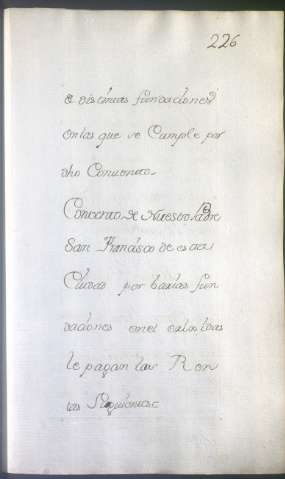 226
a distintas fundaciones
en las que se Cumple por
dho Conuento.
Conuento de Nuestro Padre
San Francisco de esta
Ciudad por barias fun
daciones en el
le pagan las Ren
tas Siguientes